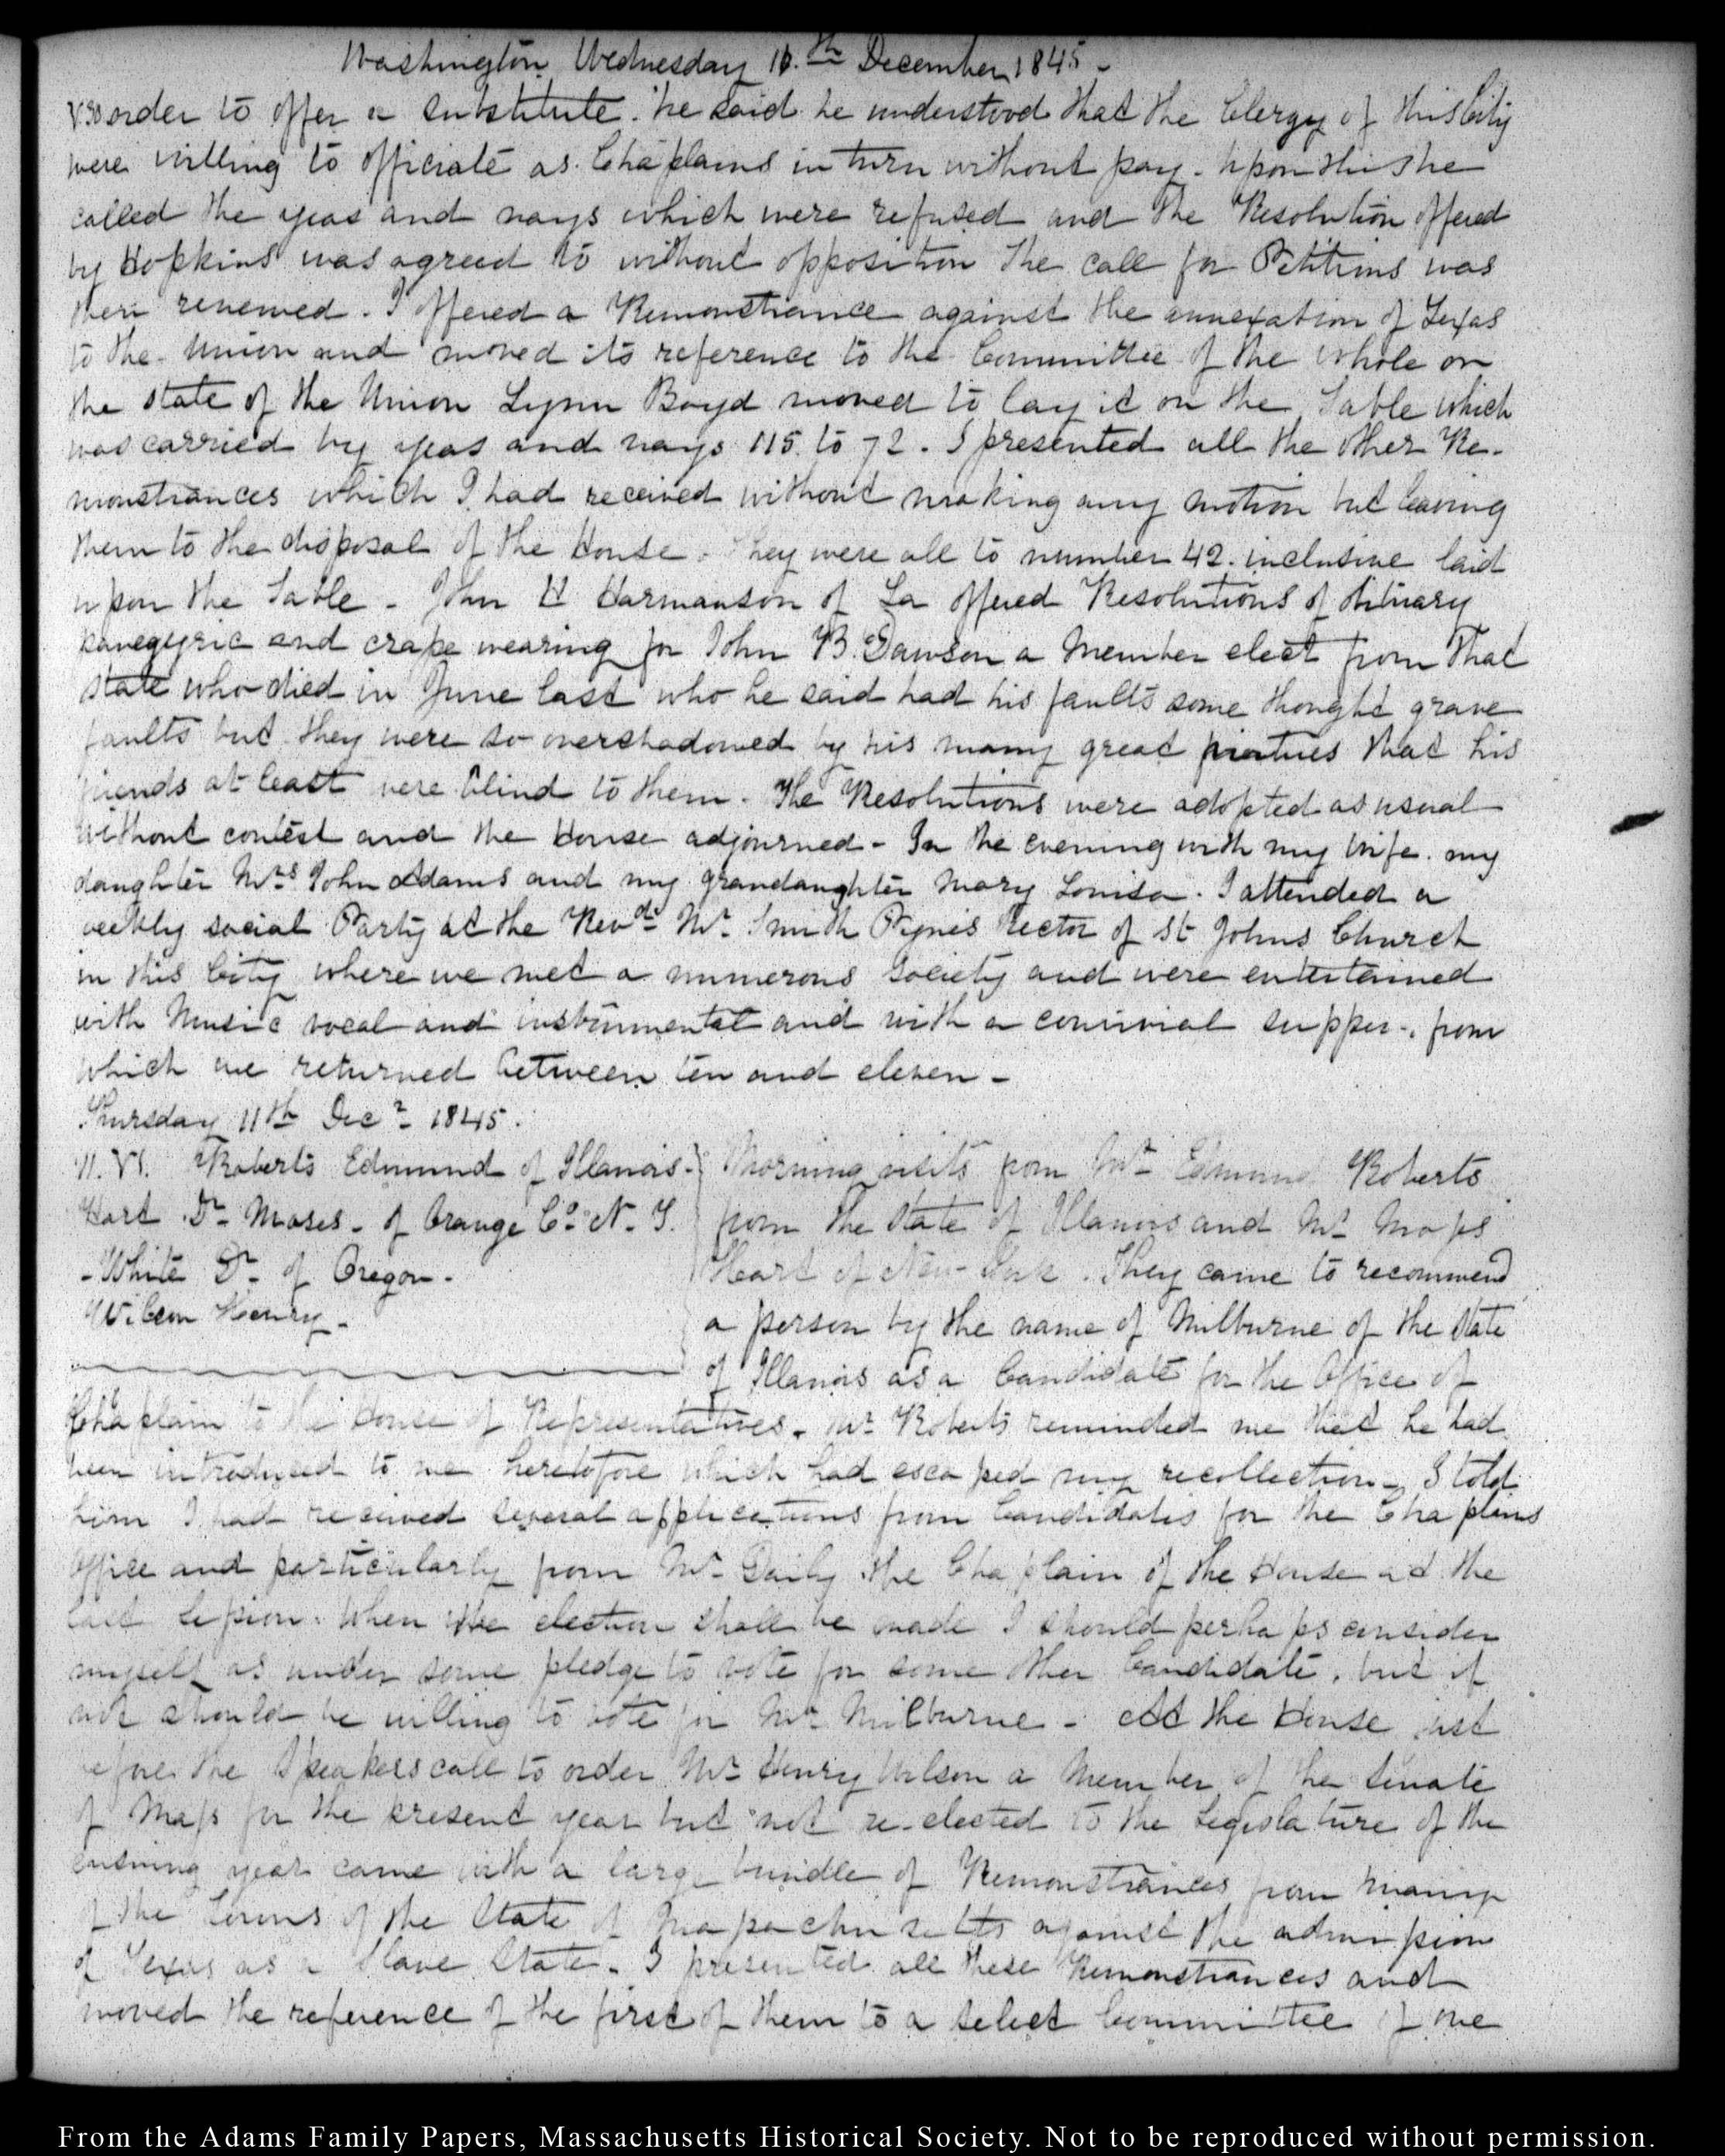 Washington Wednesday 10.th December 1845 -
order to offer a substitute. he said he understood that the Clergy of this City
were willing to officiate as Chaplains in turn without pay - Upon this he
called the yeas and nays which were refused and the Resolution offered
by Hopkins was agreed to without opposition The call for Petitions was
then renewed. I offered a Remonstrance against the annexation of Texas
to the Union and moved its reference to the Committee of the Whole on
the state of the Union Lynn Boyd moved to lay it on the Table which
was carried by yeas and nays 115. to 72. I presented all the other Re-
monstrances which I had received without making any motion but leaving
them to the disposal of the House. They were all to number 42. inclusive laid
upon the Table - John H Harmanson of La offered Resolutions of obituary
panegyric and crape wearing for John B. Dawson a Member elect from that
state who died in June last who he said had his faults some thought grave
faults but they were so overshadowed by his many great virtues that his
friends at least were blind to them. The Resolutions were adopted as usual
without contest and the House adjourned - In the evening with my Wife. my
daughter Mrs John Adams and my grandaughter Mary Louisa. I attended a
weekly social Party at the Revd. Mr. Smith Pynes Rector of St Johns Church
in this City where we met a numerous society and were entertained
with Music vocal and instrumental and with a convivial supper - from
which we returned between ten and eleven -
Thursday 11th Decr 1845.
Roberts Edmund of Illanois.
Hart Dr Moses - of Orange Co. N. Y.
- White Dr of Oregon -
Wilson Henry -
Morning visits from Mr Edmund Roberts
from the State of Illanois and Mr Moses
Heart of New-York. They came to recommend
a person by the name of Milburne of the State
of Illanois as a Candidate for the Office of
Chaplain to the House of Representatives. Mr Roberts reminded me that he had
been introduced to me heretofore which had escaped my recollection - I told
him I had received several applications from Candidates for the Chaplains
Office and particularly from Mr Daily the Chaplain of the House at the
last Session. When the election shall be made I should perhaps consider
myself as under some pledge to vote for some other Candidate, but if
not should be willing to vote for Mr Milburne - At the House just
before the Speakers call to order Mr Henry Wilson a Member of the Senate
of Mass for the present year but not re-elected to the Legislature of the
ensuing year came with a large bundle of Remonstrances from many
of the Towns of the State of Massachusetts against the admission
of Texas as a Slave State - I presented all these Remonstrances and
moved the reference of the first of them to a select Committee of one
From the Adams Family Papers, Massachusetts Historical Society. Not to be reproduced without permission.